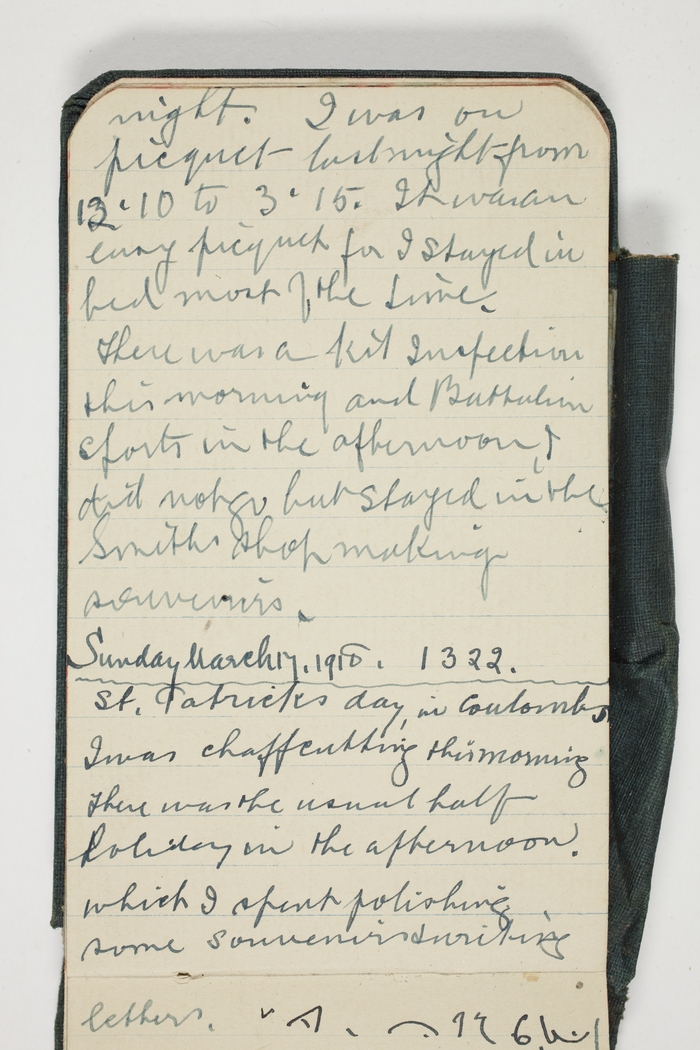 night. I was on
picquet last night from
12.10 to 3.15. It was an
easy picquet for I stayed in
bed most of the time.
There was a kit Inspection
this morning and Battalion
sports in the afternoon, I
did not go but stayed in the
Smiths shop making
souvenirs.
Sunday March 17, 1918. 1322.
St. Patricks day, in Coulomby.
I was chaffcutting this morning
There was the usual half
holiday in the afternoon.
which I spent polishing
some souvenirs & writing
letters.